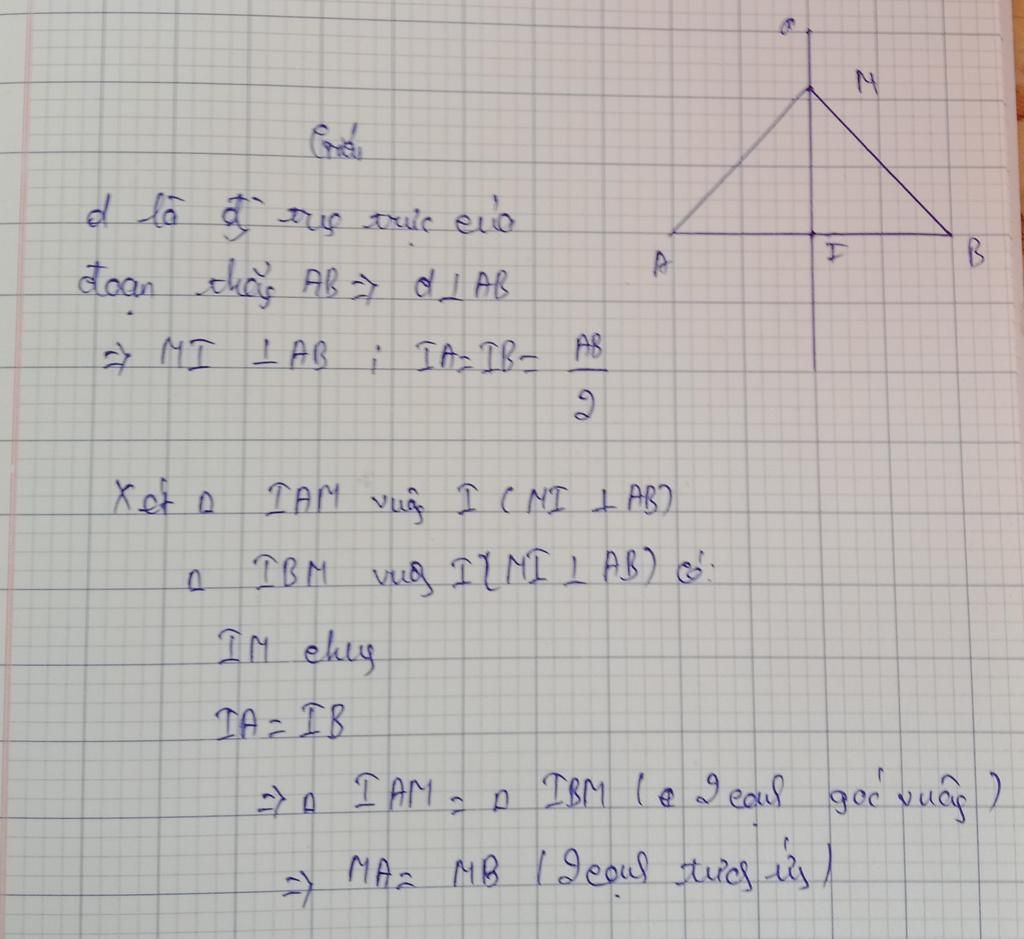 d
M
A
I
B
Giải
d là đg trug trực của
đoạn thẳg AB => d ⊥ AB
=> MI ⊥ AB ; IA = IB = AB/2
Xét Δ IAM vuôg I (MI ⊥ AB)
Δ IBM vuôg I (MI ⊥ AB) có:
IM chug
IA = IB
=> Δ IAM = Δ IBM (2 cạnh góc vuôg)
=> MA = MB (2 cạnh tươg ứg)